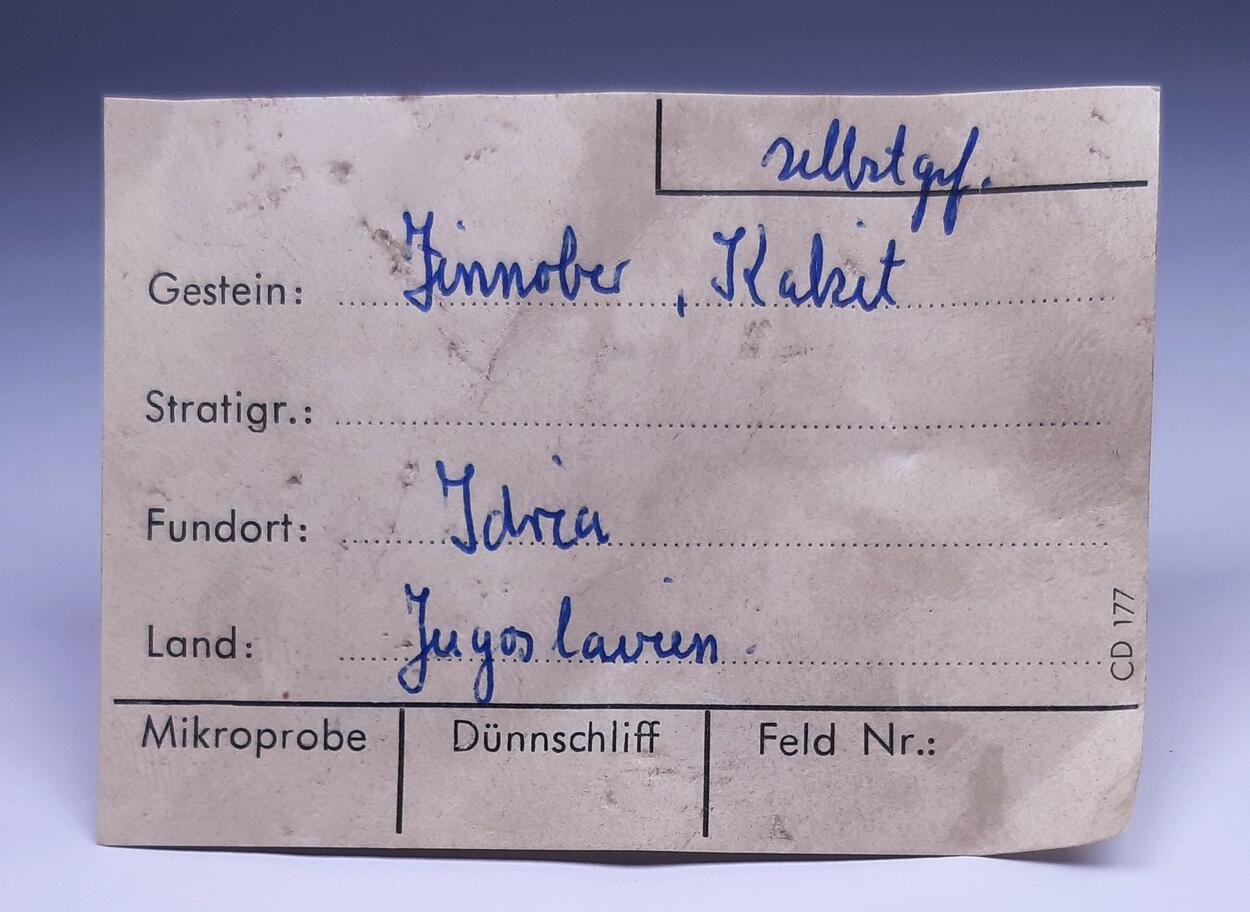 selbstgef.
Gestein: Zinnober, Kalzit
Stratigr.:
Fundort: Idria
Land: Jugoslawien
CD 177
Mikroprobe Dünnschliff Feld Nr.: